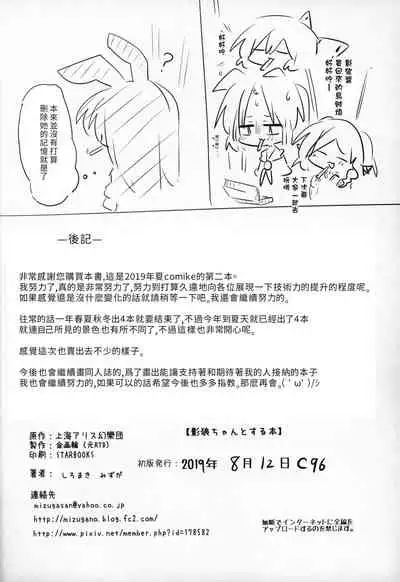 影狼
要回來的見财情
好好吟~
好好吟
下次跟
大家一起去
玩啊
本來並沒有打算
刪除她的記憶就是了
—後記—
非常感謝您購買本書,這是2019年夏comike的第二本。
我努力了,真的是非常努力了,努力到打算久違地向各位展現一下技術力的提升的程度呢。
如果感覺還是沒什麼變化的話就請稍等一下吧。我還會繼續努力的。
往常的話一年春夏秋冬出4本就要結束了,不過今年到夏天就已經出了4本
就連自己所見的景色也有所不同了,不過還是非常開心呢。
感覺這次也賣出去不少的樣子。
今後也會繼續畫同人誌的，爲了畫出能讓支持著和期待著我的人接納的本子
我也會繼續努力的,如果可以的話希望今後也多多指教。那麽再會。( ' ω' )/ｼ
原作：上海アリス幻樂団
製作：金画輪（元RTD）
印刷：STARBOOKS
著者：しろまき みずが
連絡先
mizugasan@yahoo.co.jp
http://mizugano.blog.fc2.com/
http://www.pixiv.net/member.php?id=178582
【影狼ちゃんとする本】
初版発行：2019年 8月12日 C96
無断でインターネットに全編を
アップロードするのを禁じます。